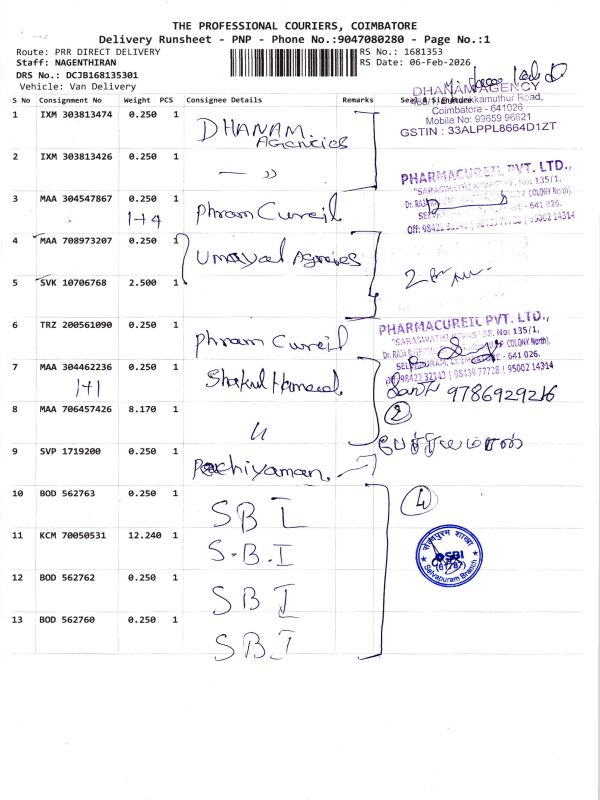 THE PROFESSIONAL COURIERS, COIMBATORE
Delivery Runsheet - PNP - Phone No.:9047080280 - Page No.:1
Route: PRR DIRECT DELIVERY
RS No.: 1681353
Staff: NAGENTHIRAN
RS Date: 06-Feb-2026
DRS No.: DCJB168135301
Vehicle: Van Delivery
S No Consignment No Weight PCS Consignee Details Remarks Seal & Signature
DHANAM AGENCY
Coimbatore - 641026
Mobile No: 99659 96621
GSTIN : 33ALPPL8664D1ZT
1 IXM 303813474 0.250 1 DHANAM Agencies
2 IXM 303813426 0.250 1 — 〃
PHARMACUREIL PVT. LTD.,
3 MAA 304547867 0.250 1 Phram Cureil
1+4
4 MAA 708973207 0.250 1 Umayal Agencies
5 SVK 10706768 2.500 1
6 TRZ 200561090 0.250 1 Phram Cureil
PHARMACUREIL PVT. LTD.,
"SARASWATHI NIVAS" SF. No: 135/1,
SELVAPURAM, COIMBATORE - 641 026.
Off: 98422 32143 | 98439 77728 | 95002 14314
7 MAA 304462236 0.250 1 Shakul Hameed
1+1
9786929216
8 MAA 706457426 8.170 1 〃
2
9 SVP 1719200 0.250 1 Pechiyaman
10 BOD 562763 0.250 1 SBI
4
11 KCM 70050531 12.240 1 S.B.I
SBI
Selvapuram Branch
12 BOD 562762 0.250 1 SBI
13 BOD 562760 0.250 1 SBI